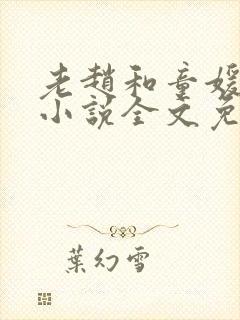 老趙和童媛
小說全文免
葉幻雪